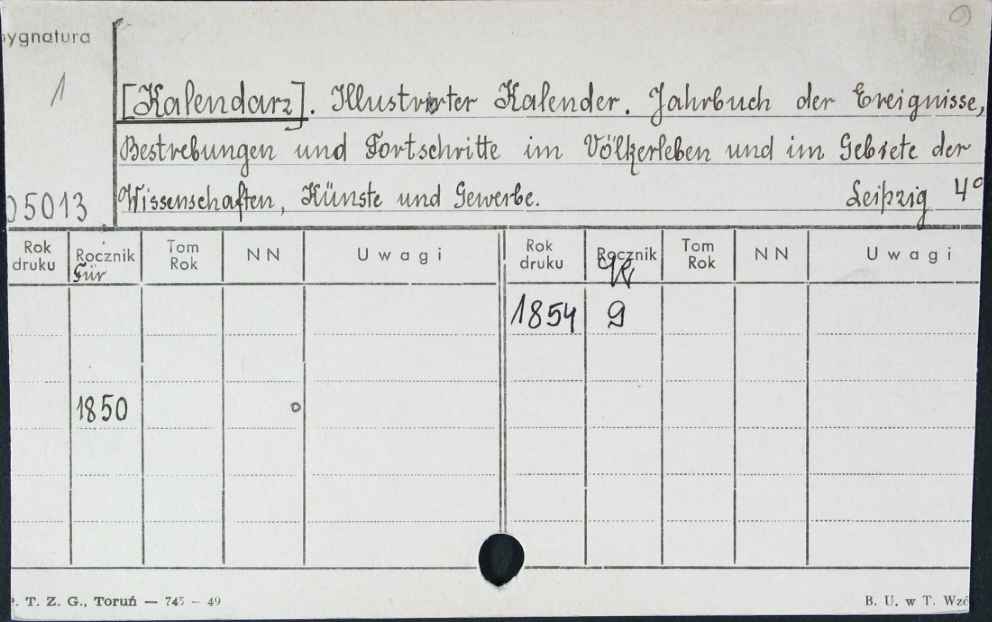 Sygnatura
1
[Kalendarz]. Illustrirter Kalender. Jahrbuch der Ereignisse,
Bestrebungen und Fortschritte im Völkerleben und im Gebiete der
05013 Wissenschaften, Künste und Gewerbe. Leipzig 4°
Rok druku Rocznik Tom Rok NN Uwagi Rok druku Rocznik Tom Rok NN Uwagi
Für
1854 9
1850
P. T. Z. G., Toruń — 745 — 49 B. U. w T.